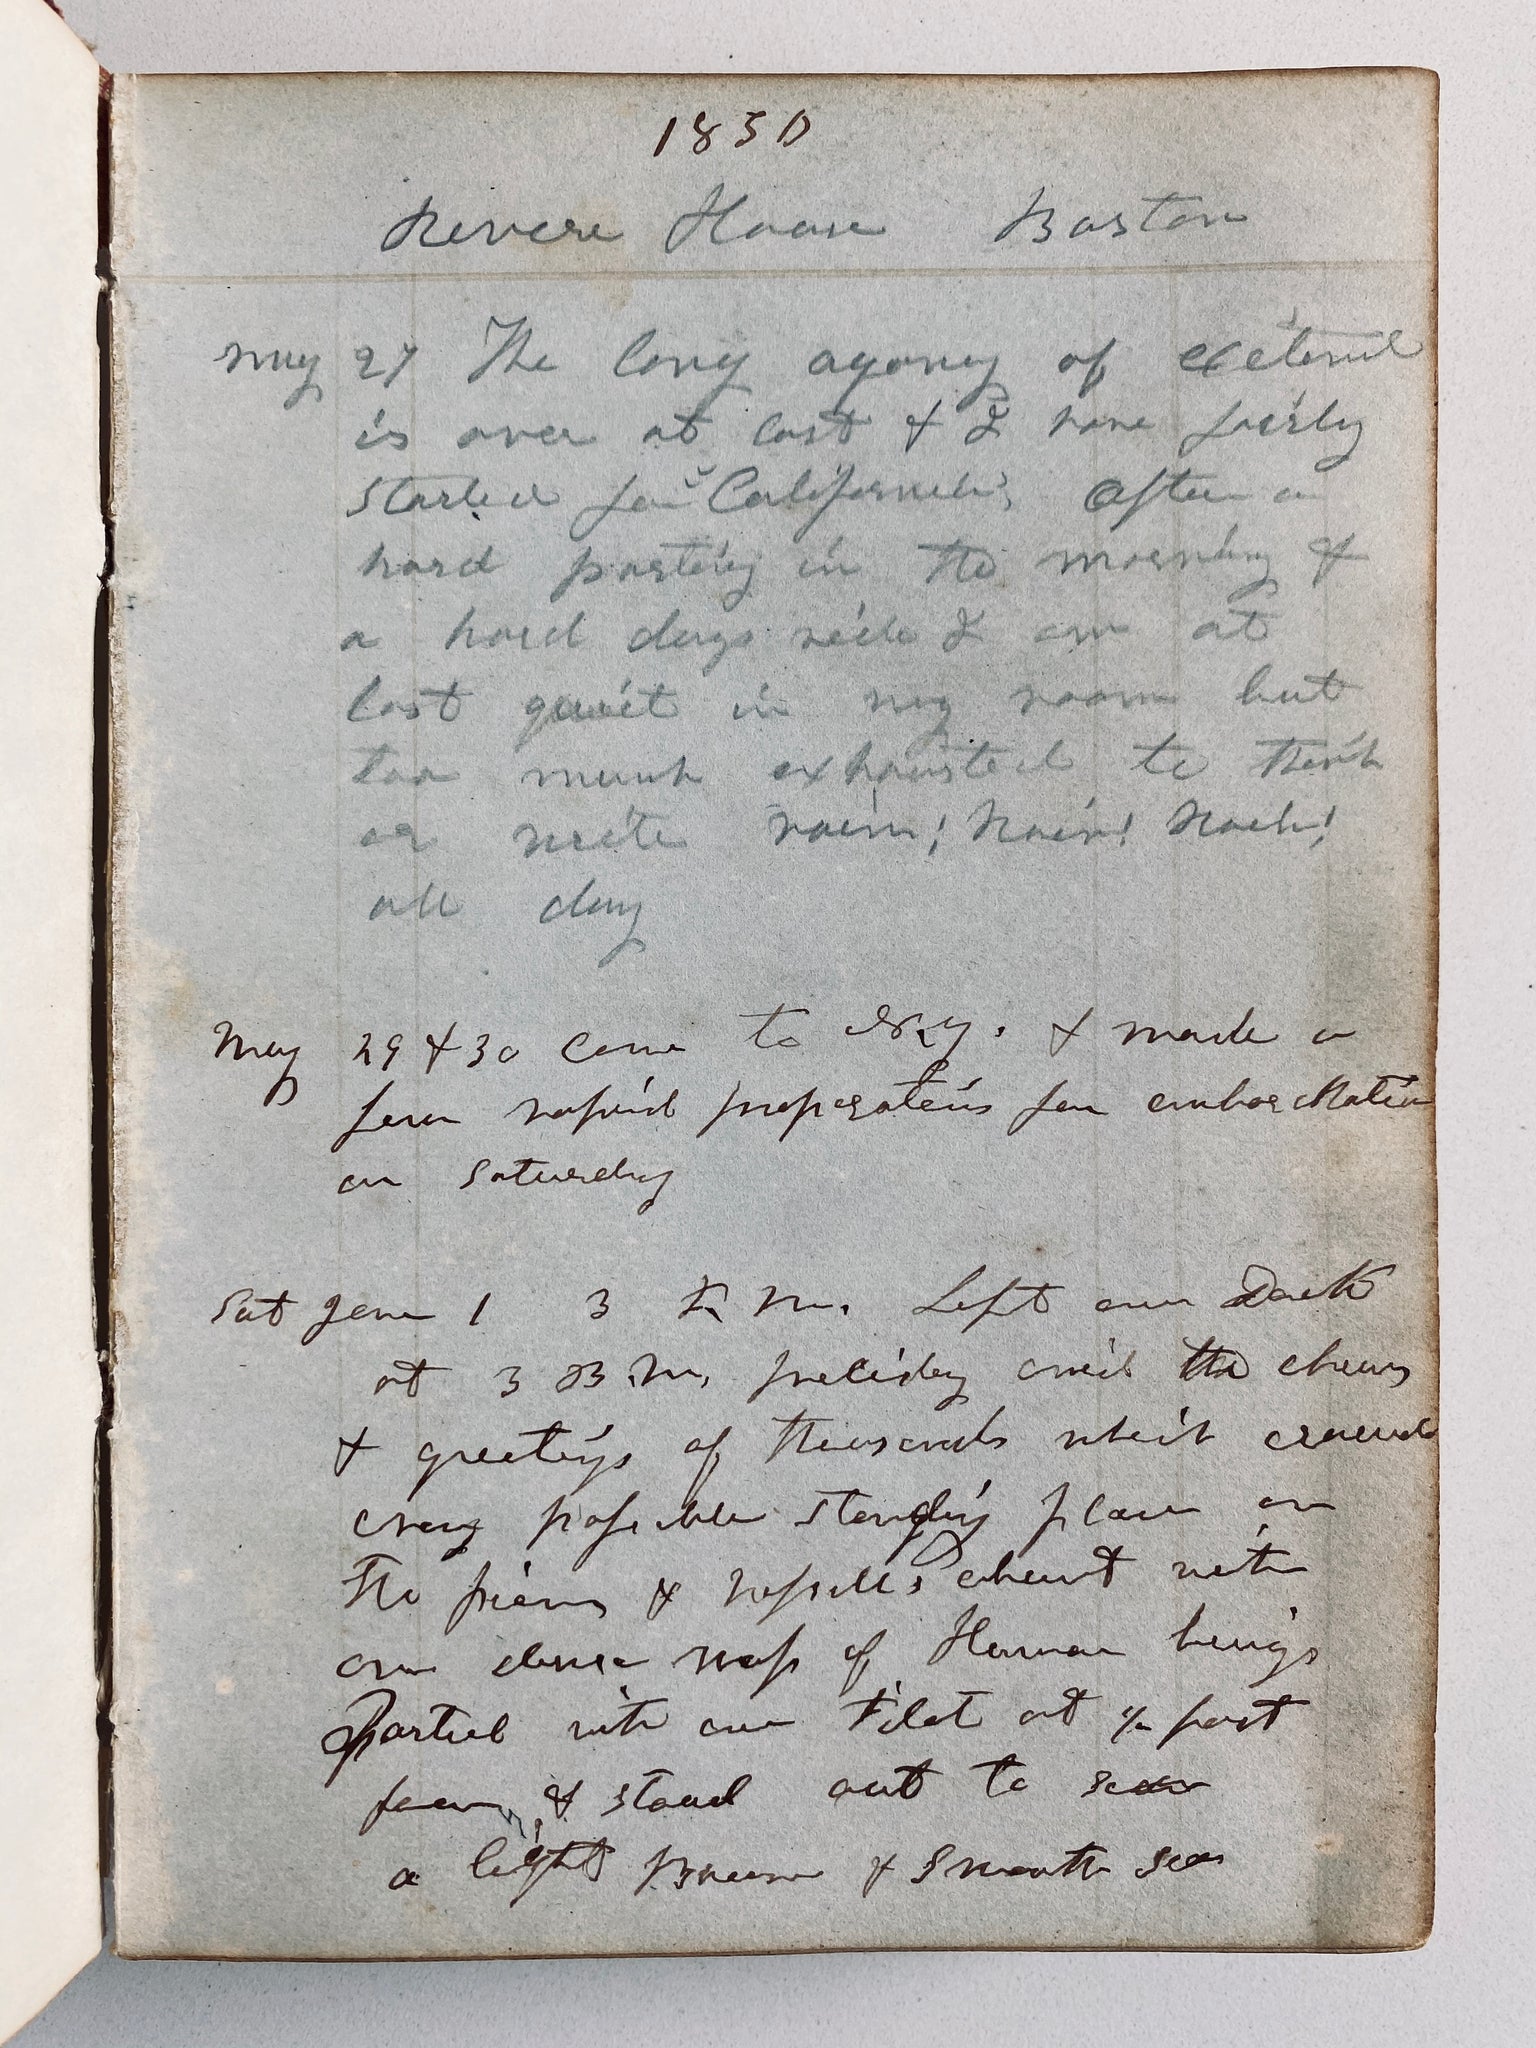 1850
Revere House Boston
May 27 The long agony of
is over at last & I have fairly
started for California; After a
hard parting in the morning &
a hard days ride I am at
last quiet in my room but
too much exhausted to think
or write rain! rain! rain!
all day
May 29 & 30 Came to N.Y. & made a
few rapid preparations for embarkation
on Saturday
Sat June 1 3 P. M. Left our Dock
at 3 P.M. precisely amid the cheers
& greetings of thousands which crowd
every possible standing place on
the piers & vessels about with
one dense mass of Human beings
Parted with our Pilot at ½ past
four & stood out to sea
a light Breeze & smooth sea